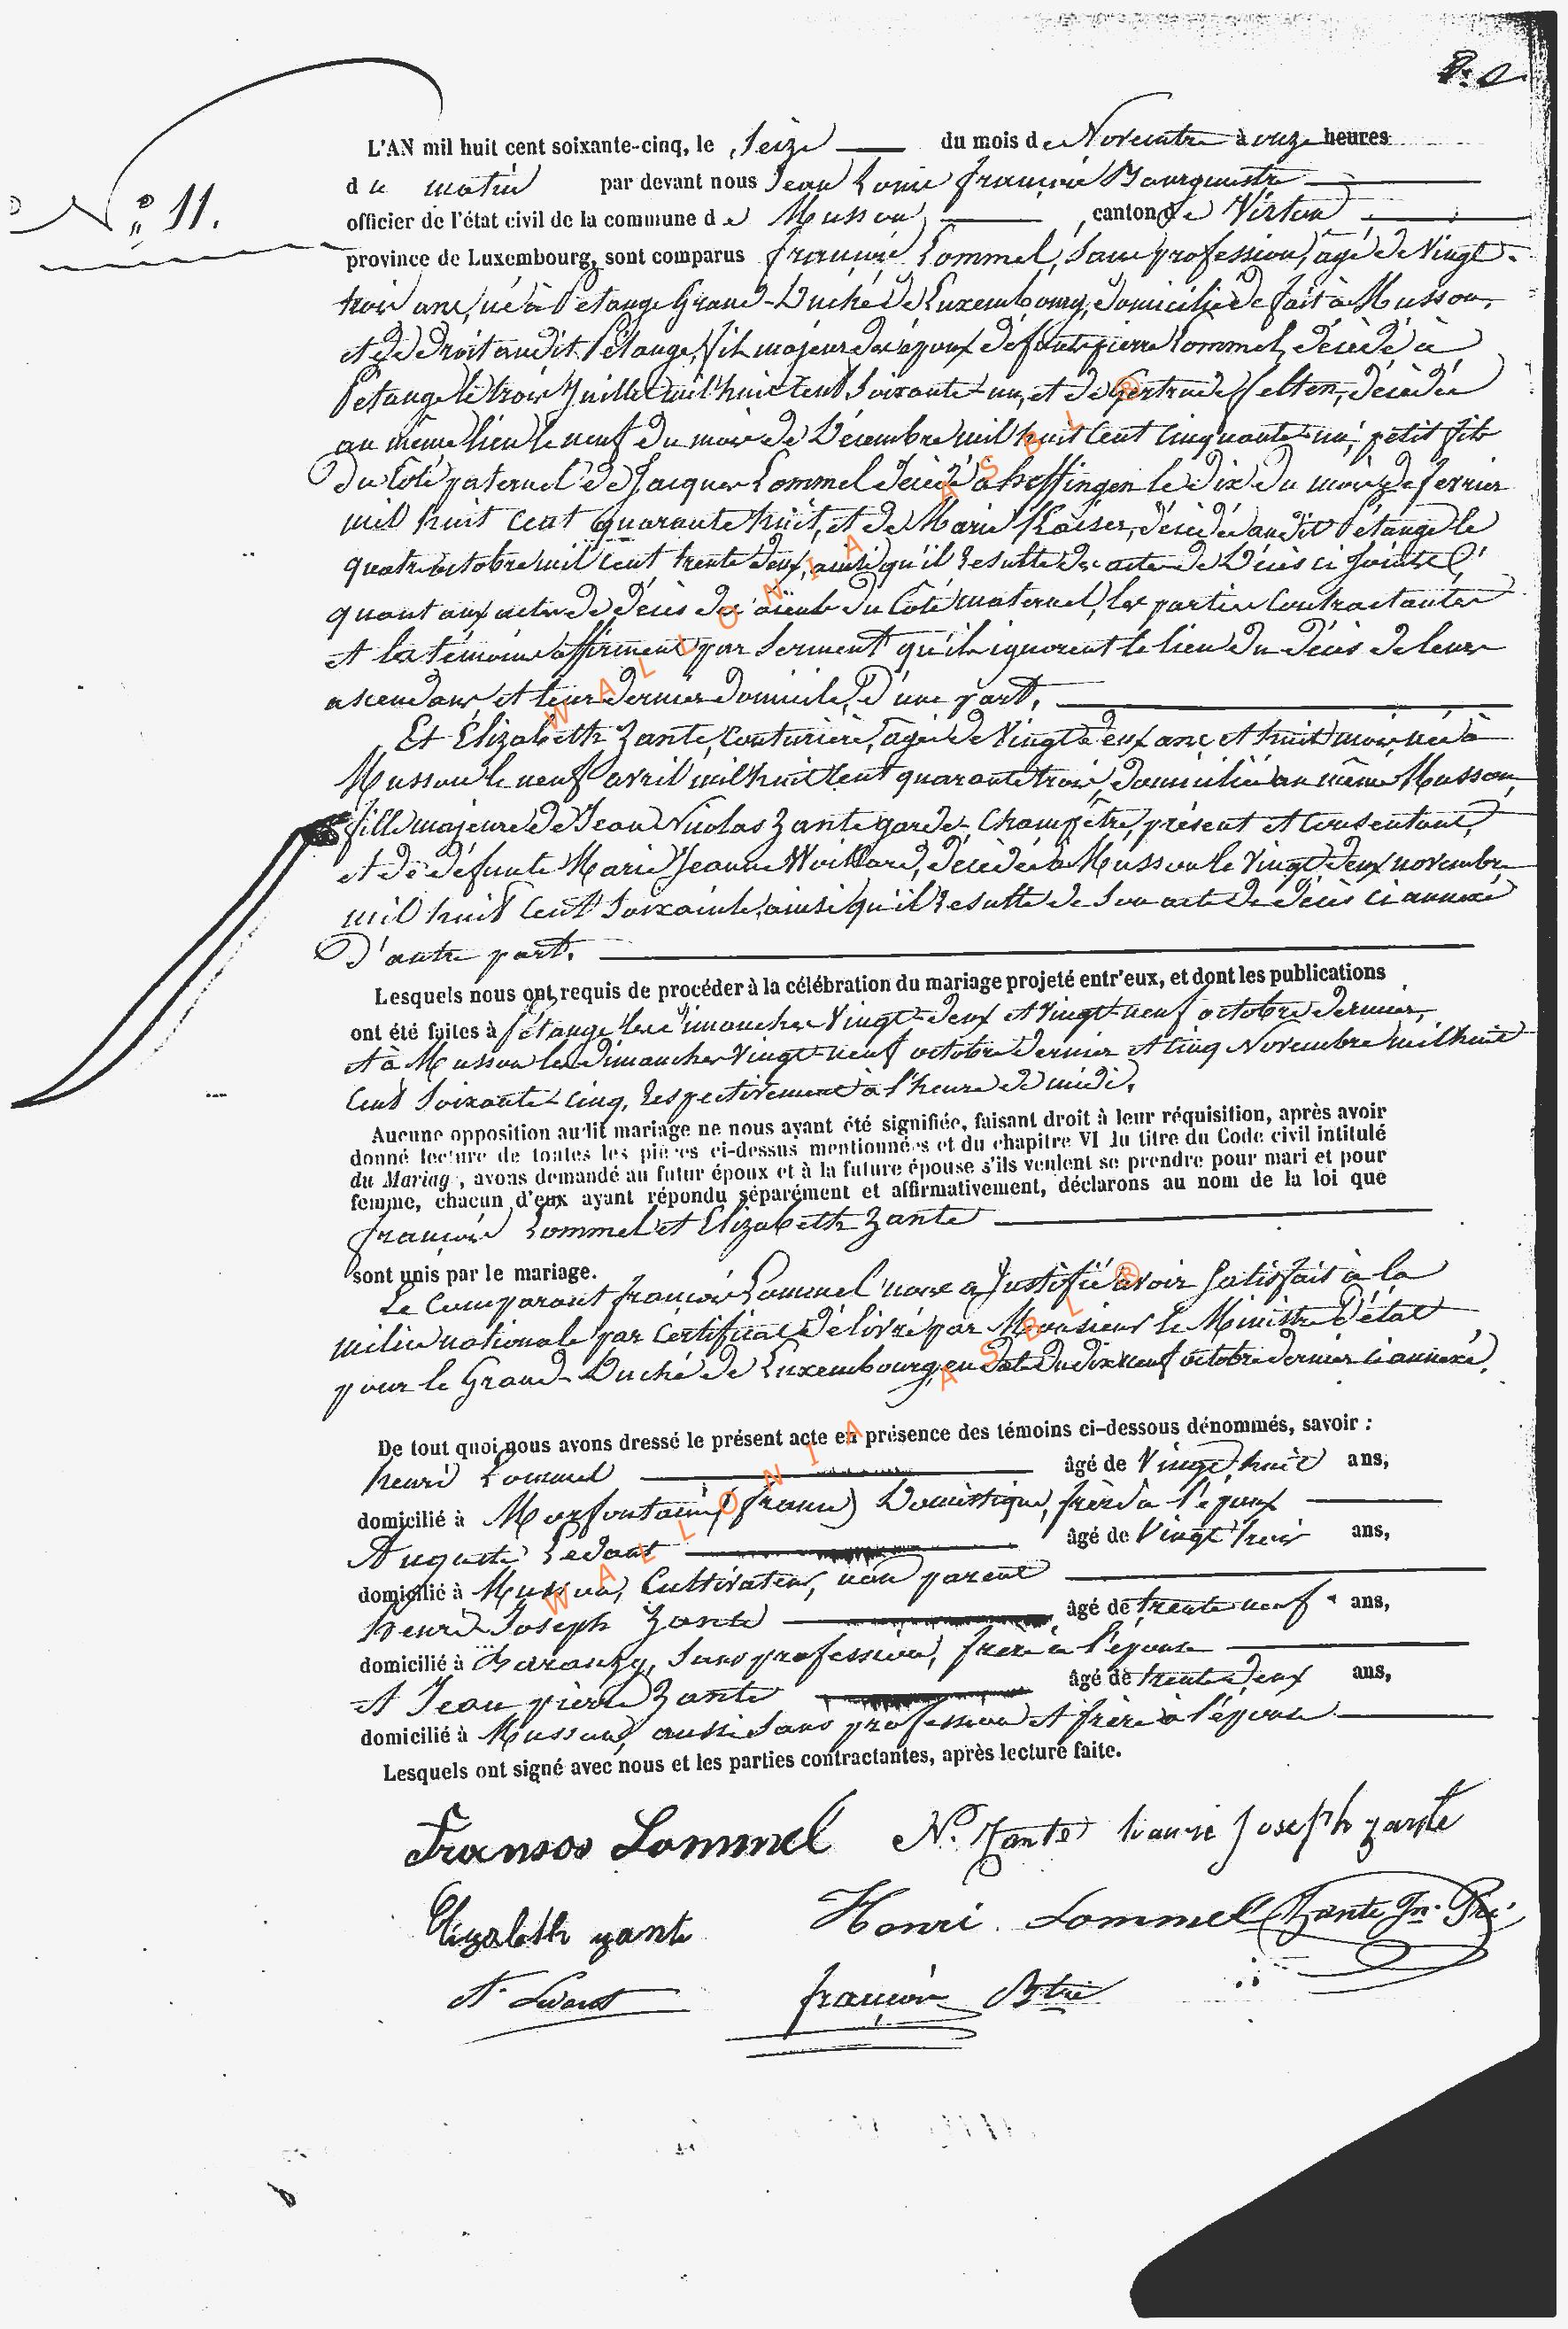 N.° 11.
L'AN mil huit cent soixante-cinq, le Seize du mois de Novembre à onze heures
du matin par devant nous Jean Louis françois Bourguestre
officier de l'état civil de la commune de Musson, canton de Virton,
province de Luxembourg, sont comparus françois Lommel, sans profession, âgé de Vingt-
trois ans, né à Pétange Grand-Duché de Luxembourg, domicilié de fait à Musson,
et de droit audit Pétange, fils majeur des époux défunts pierre Lommel, décédé à
Pétange le trois Juillet mil huit cent soixante-un, et de Gertrude felten, décédée
au même lieu le neuf du mois de Décembre mil huit cent cinquante-un, petit fils
du Côté paternel de Jacques Lommel décédé à heffingen le dix du mois de fevrier
mil huit cent quarante huit, et de Marie Kaiser, décédée audit Pétange le
quatre octobre mil cent trente deux, ainsi qu'il resulte des actes de Décès ci Joints
quant aux actes de décès des aïeuls du Côté maternel, les parties contractantes
et les témoins affirment par serment qu'ils ignorent le lieu du décès de leurs
ascendans, et leur dernier domicile, D'une part.
Et Elizabeth Zante, couturière, âgée de Vingt deux ans et huit mois, née à
Musson le neuf avril mil huit cent quarante trois, domiciliée au même Musson,
fille majeure de Jean Nicolas Zante garde-Champêtre, présent et consentant,
et de défunte Marie Jeanne décédée à Musson le Vingt deux novembre
mil huit cent soixante, ainsi qu'il resulte de son acte de décès ci annexé
D'autre part.
Lesquels nous ont requis de procéder à la célébration du mariage projeté entr'eux, et dont les publications
ont été faites à Pétange les dimanches Vingt-deux et Vingt-neuf octobre dernier,
et à Musson les dimanches vingt-neuf octobre dernier et cinq Novembre mil huit
cent soixante-cinq, respectivement à l'heure de midi.
Aucune opposition audit mariage ne nous ayant été signifiée, faisant droit à leur réquisition, après avoir
donné lecture de toutes les pièces ci-dessus mentionnées et du chapitre VI du titre du Code civil intitulé
du Mariage, avons demandé au futur époux et à la future épouse s'ils veulent se prendre pour mari et pour
femme, chacun d'eux ayant répondu séparément et affirmativement, déclarons au nom de la loi que
françois Lommel et Elizabeth Zante
sont unis par le mariage.
Le Comparant françois Lommel nous a Justifié avoir Satisfait à la
milice nationale par Certificat délivré par Monsieur le Ministre D'état
pour le Grand-Duché de Luxembourg, en date du dix neuf octobre dernier ci annexé.
De tout quoi nous avons dressé le présent acte en présence des témoins ci-dessous dénommés, savoir :
henri Lommel âgé de Vingt huit ans,
domicilié à Morfontaine (france) Domestique, frère à l'époux
Auguste Ledant âgé de Vingt trois ans,
domicilié à Musson, Cultivateur, non parent
henri Joseph Zante âgé de trente neuf ans,
domicilié à Baranzy, sans profession, frère à l'épouse
et Jean pierre Zante âgé de trente deux ans,
domicilié à Musson, aussi sans profession et frère à l'épouse
Lesquels ont signé avec nous et les parties contractantes, après lecture faite.
Fransos Lommel N. Zante hanri Joseph zante
Elizabeth zante Henri Lommel Zante Jn. Pre
A. Ledant françois Btre
WALLONIA ASBL ®
WALLONIA ASBL ®